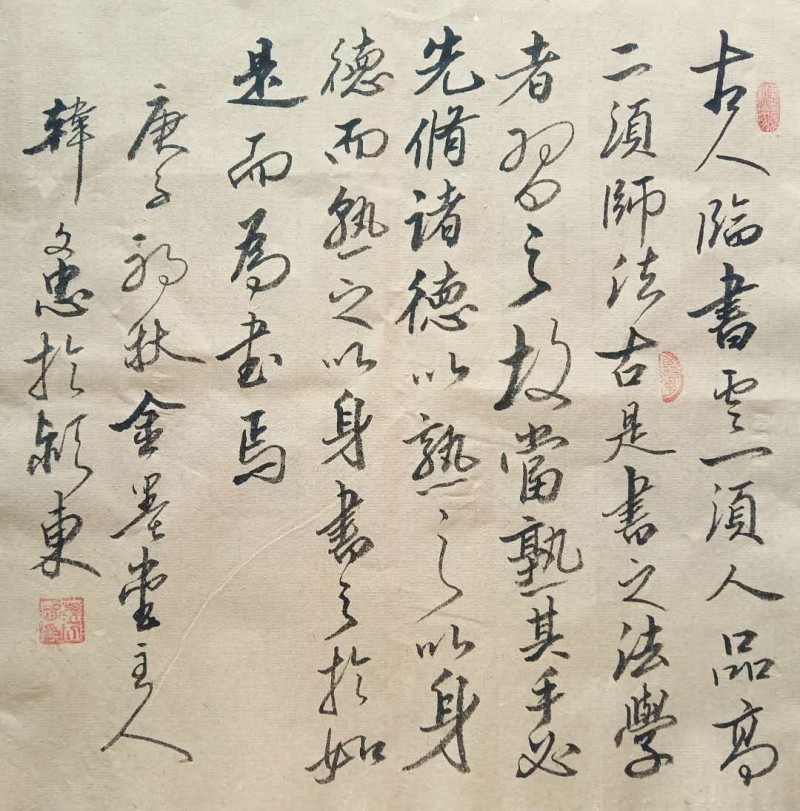 古人临書雲一須人品髙
二須師法古是書之法學
者習之故當熟其手必
先脩诸德以熟之以身
德而熟之以身書之於如
是而為书焉
庚子初秋金墨堂主人
韓文忠於颍東